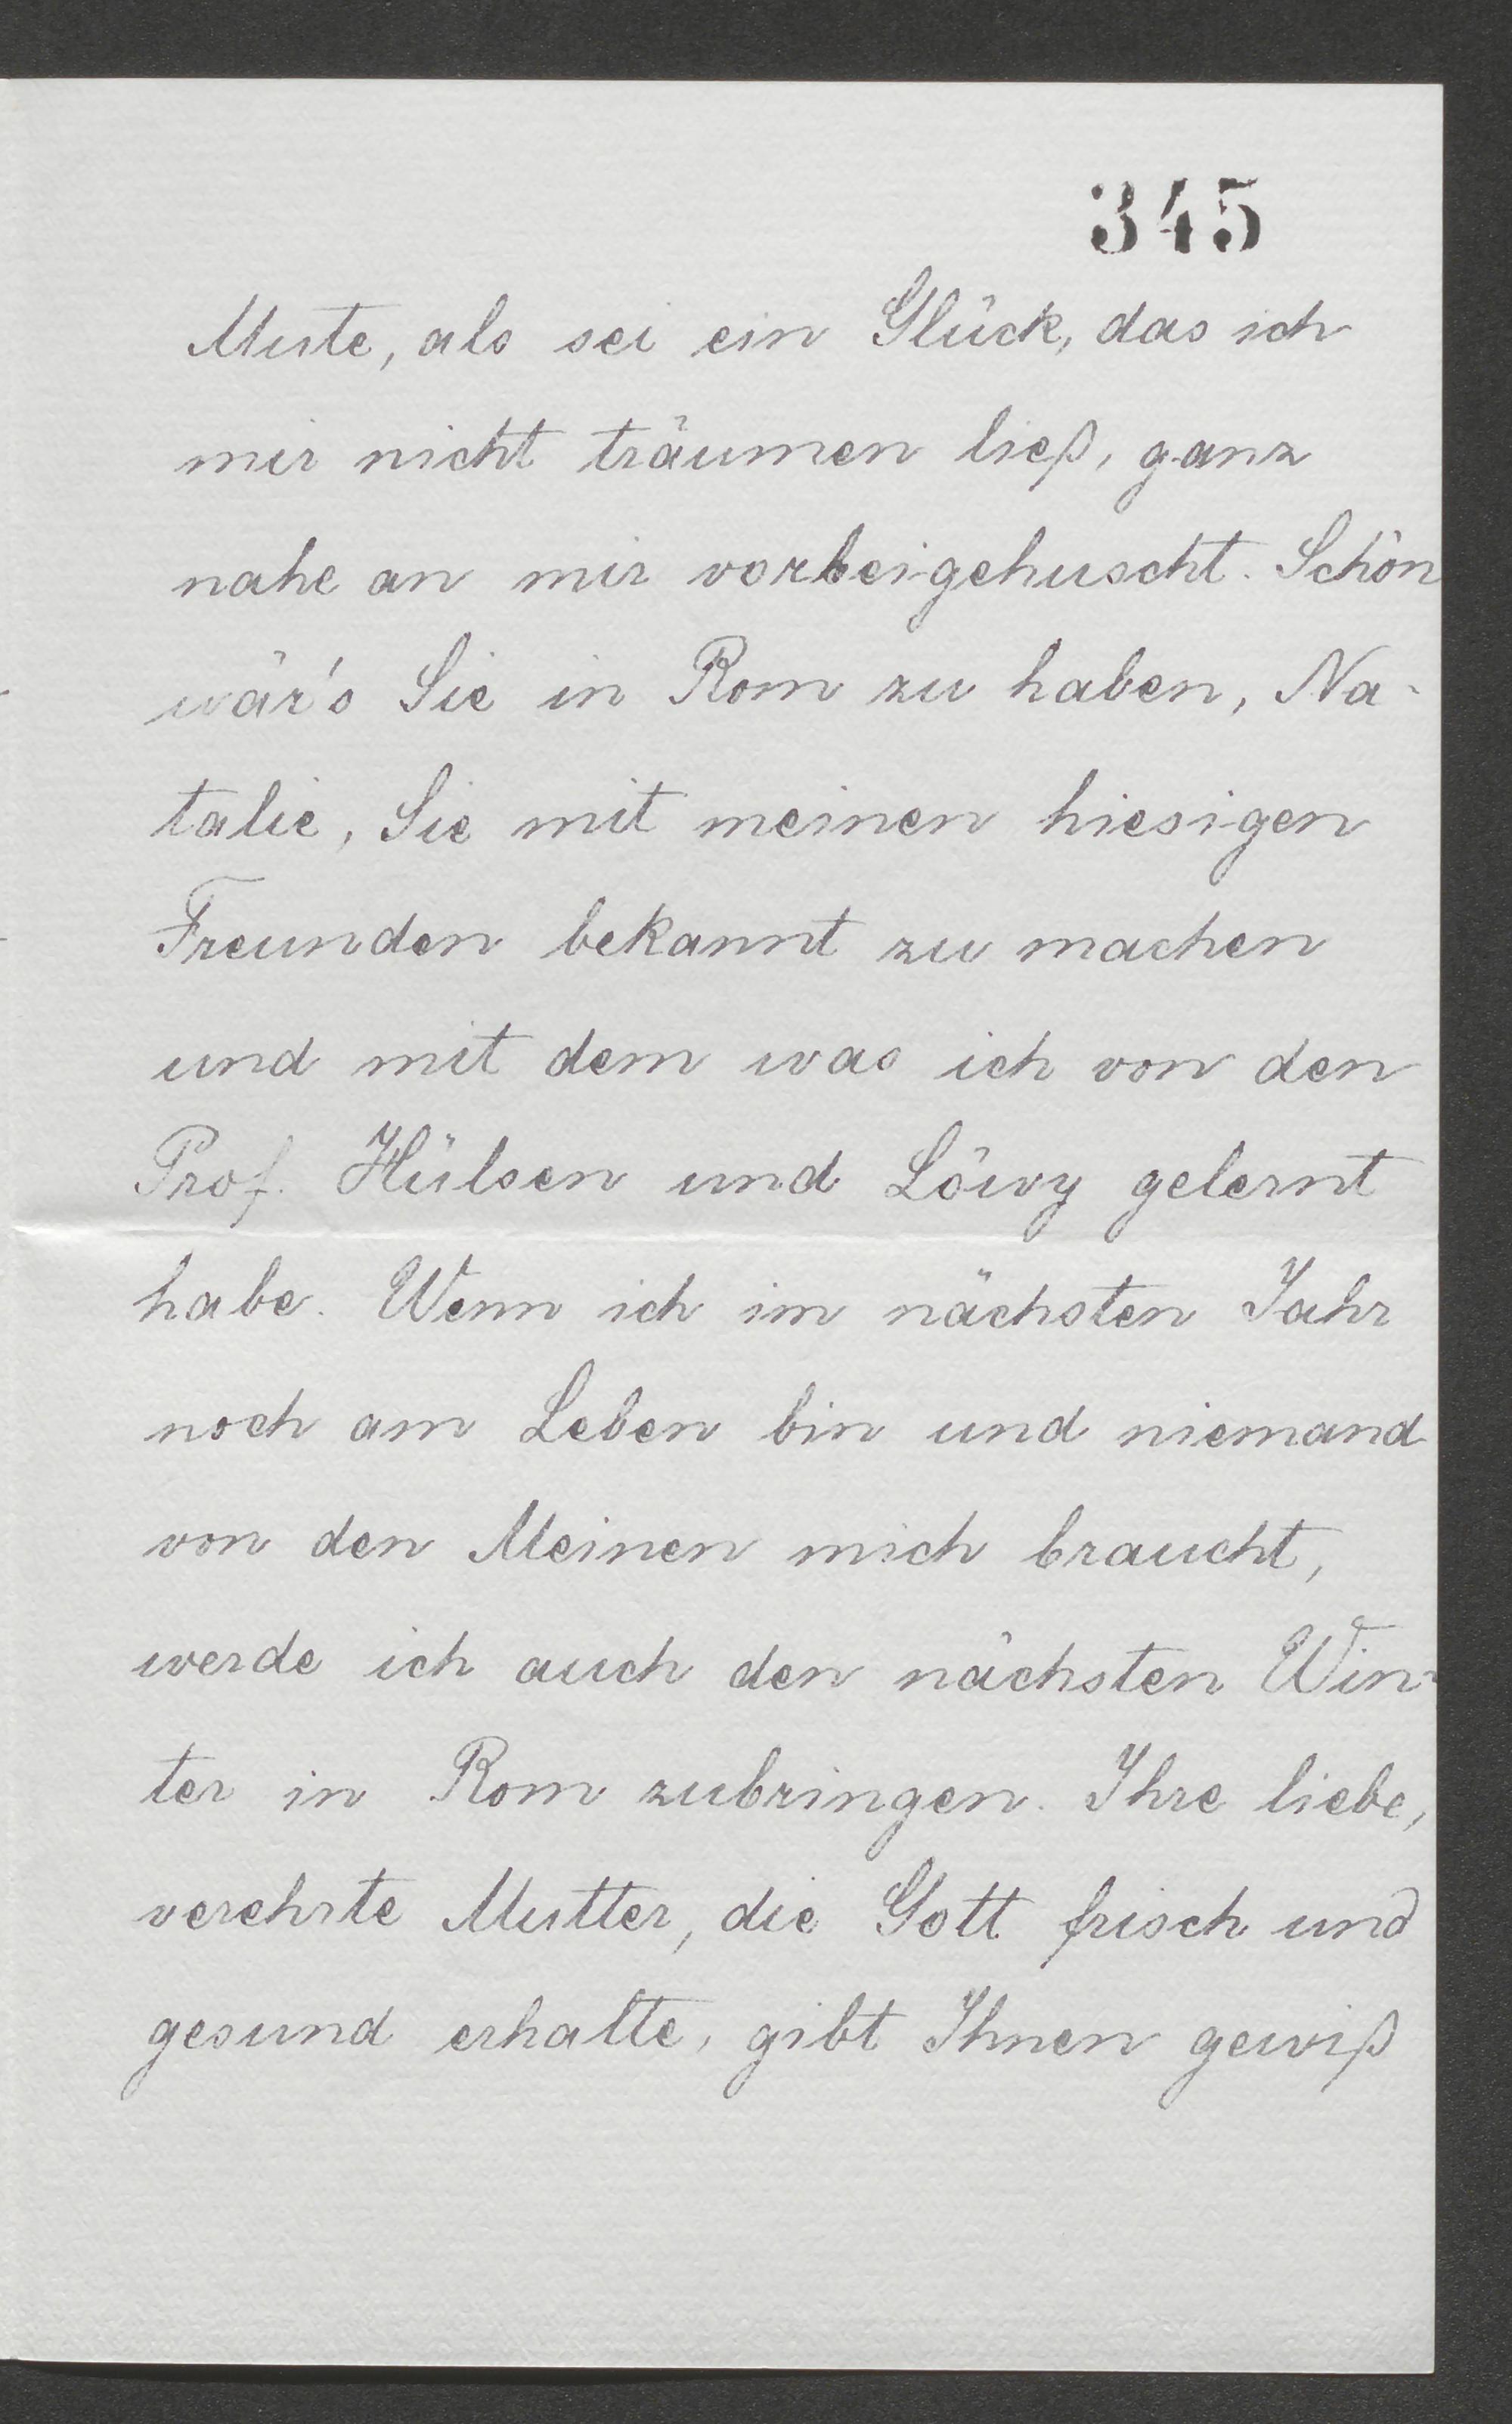 345
Mute, als sei ein Glück, das ich
mir nicht träumen ließ, ganz
nahe an mir vorbeigehuscht. Schön
wär's Sie in Rom zu haben, Na-
talie, Sie mit meinen hiesigen
Freunden bekannt zu machen
und mit dem was ich von den
Prof. Hülsen und Löwy gelernt
habe. Wenn ich im nächsten Jahr
noch am Leben bin und niemand
von den Meinen mich braucht,
werde ich auch den nächsten Win-
ter in Rom zubringen. Ihre liebe,
verehrte Mutter, die Gott frisch und
gesund erhalte, gibt Ihnen gewiß